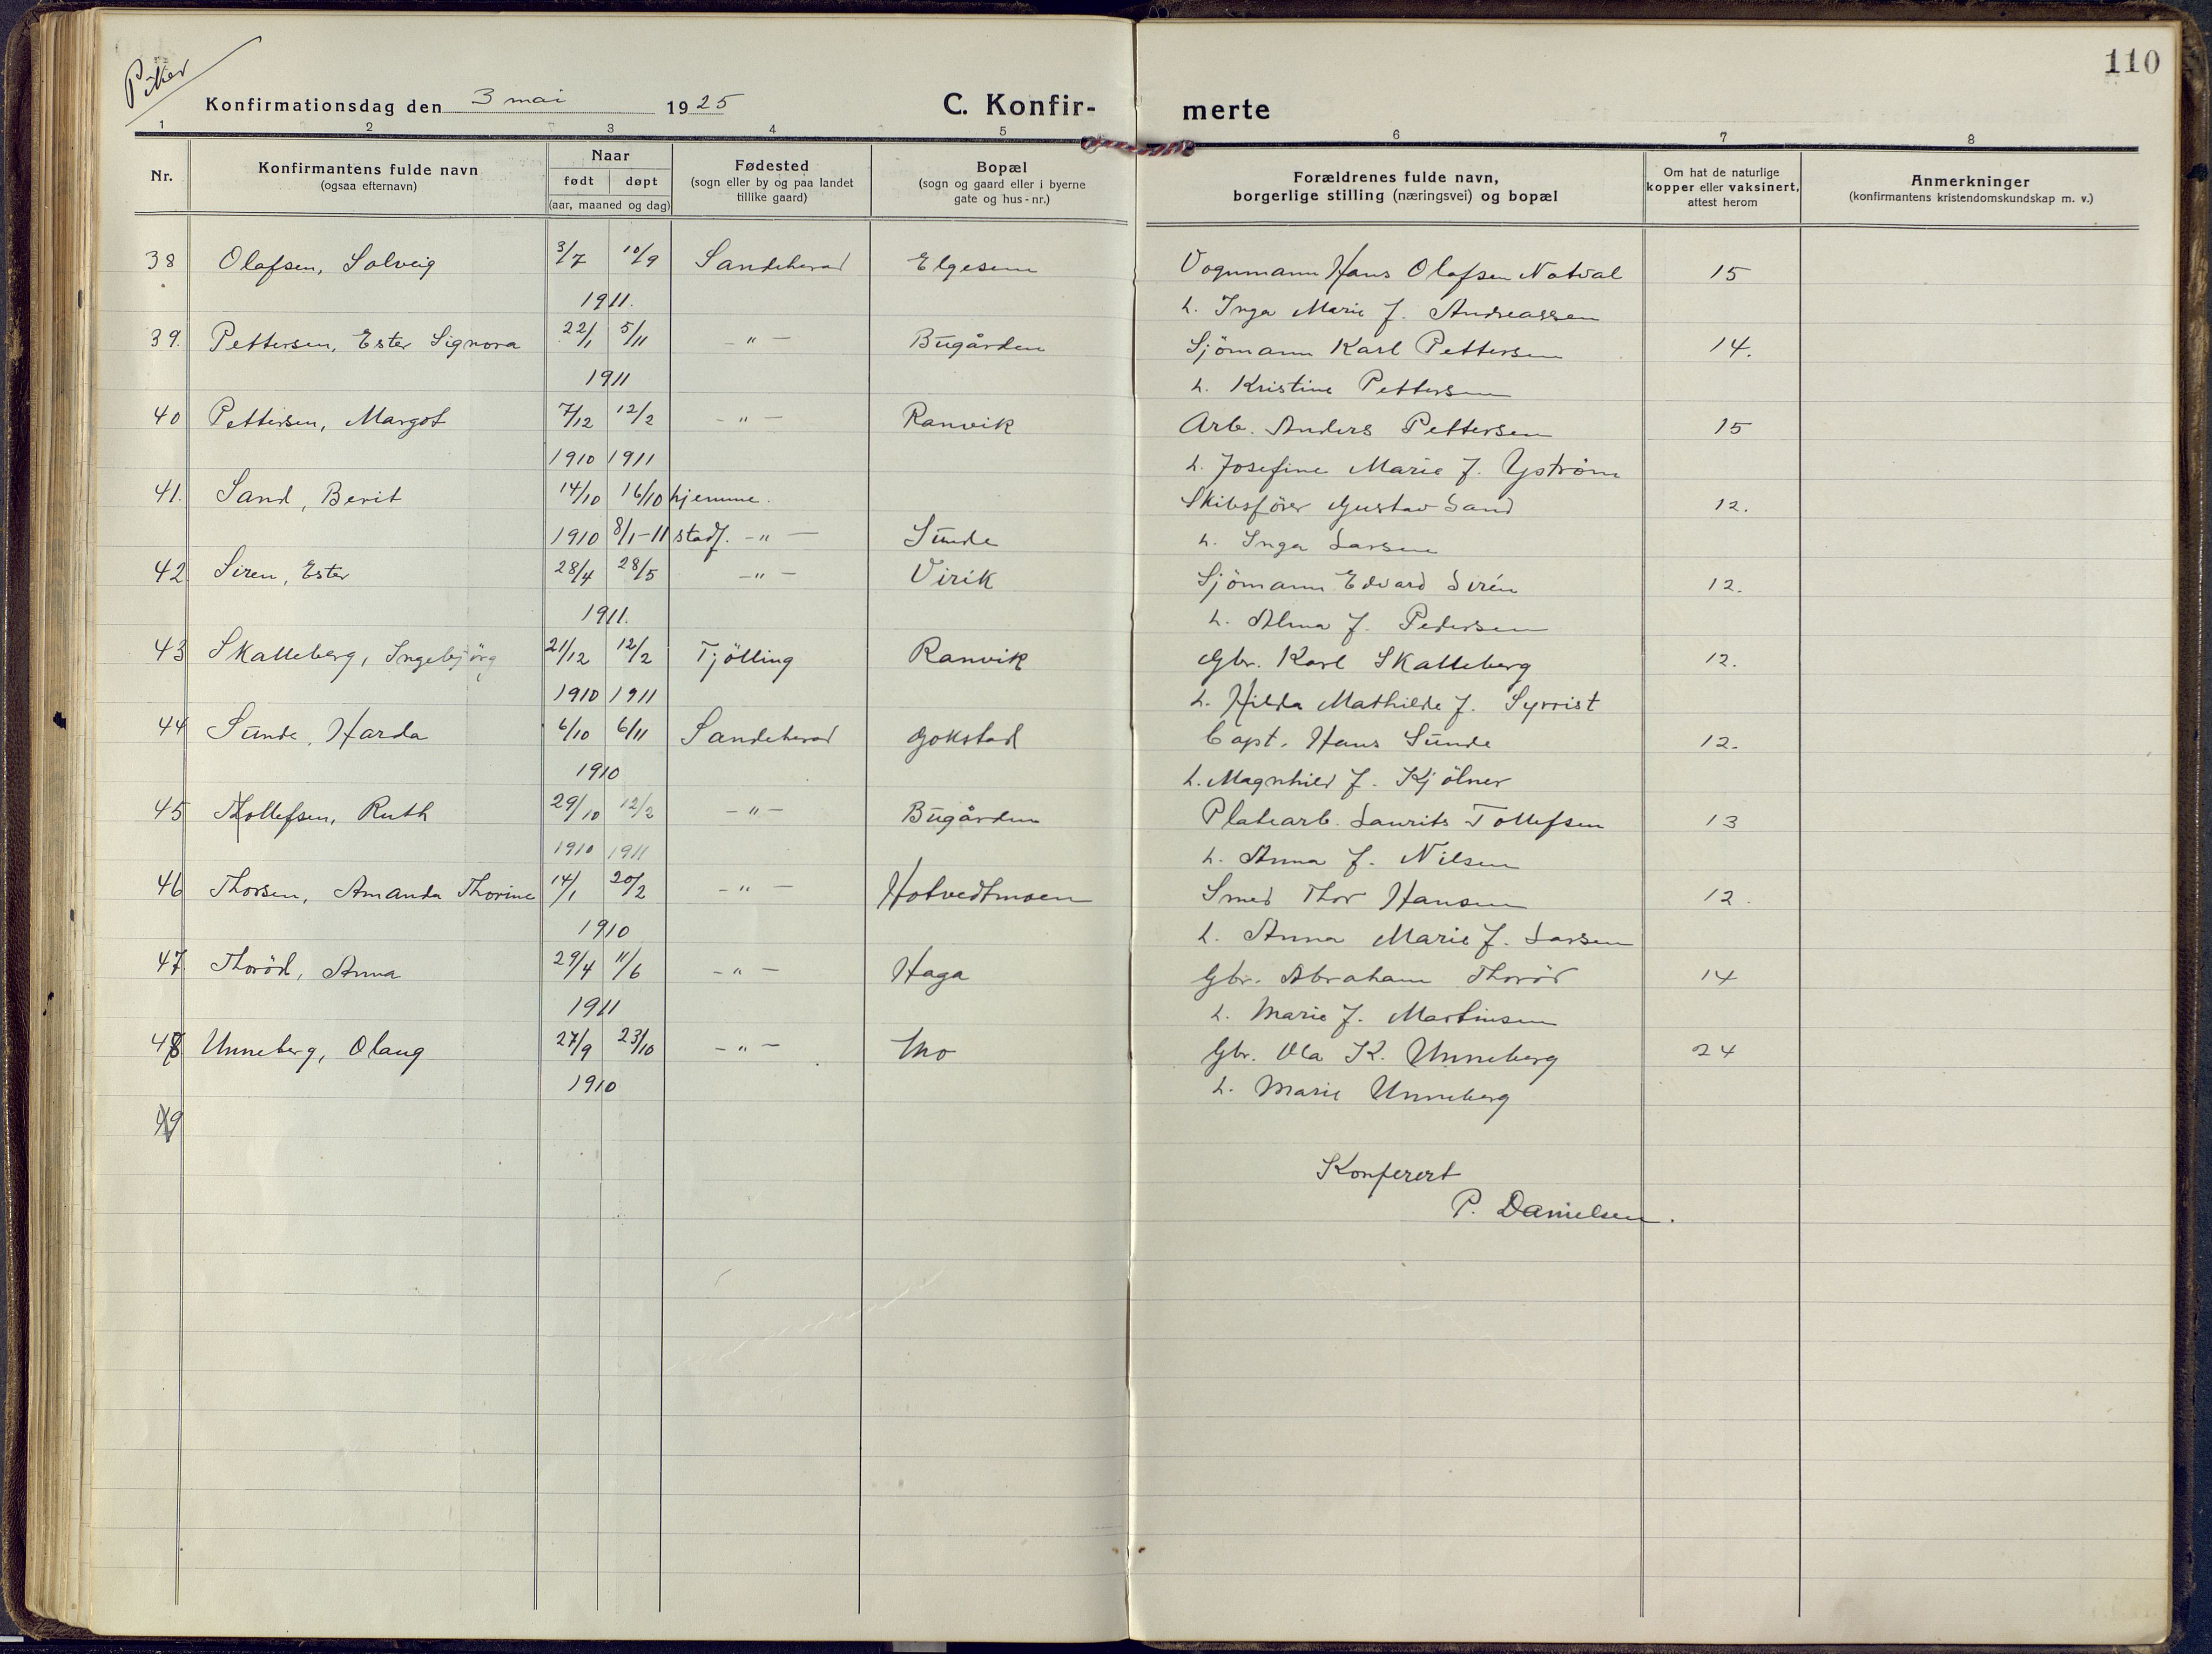 110
Piker
Konfirmationsdag den 3 mai 1925 C. Konfirmerte
1 2 3 4 5 6 7 8
Nr.
Konfirmantens fulde navn
(ogsaa efternavn)
Naar
født døpt
(aar, maaned og dag)
Fødested
(sogn eller by og paa landet
tillike gaard)
Bopæl
(sogn og gaard eller i byerne
gate og hus-nr.)
Forældrenes fulde navn,
borgerlige stilling (næringsvei) og bopæl
Om hat de naturlige
kopper eller vaksinert,
attest herom
Anmerkninger
(konfirmantens kristendomskundskap m. v.)
38 Olafsen, Solveig 3/7 10/9 Sandeherad Elgesem Vognmann Hans Olafsen Natval 15
1911. h. Inga Marie f. Andreassen
39. Pettersen, Ester Signora 22/1 5/11 -"- Bugården Sjömann Karl Pettersen 14.
1911 h. Kristine Pettersen
40 Pettersen, Margot 7/12 12/2 -"- Ranvik Arb. Anders Pettersen 15
1910 1911 h. Josefine Marie f. Yström
41. Sand, Berit 14/10 16/10 hjemme. Skibsförer Gustav Sand 12.
1910 8/1-11 stadf. -"- Sunde h. Inga Larsen
42 Siren, Ester 28/4 28/5 -"- Virik Sjömann Edvard Sirén 12.
1911. h. Alma f. Pedersen
43 Skalleberg, Ingebjörg 21/12 12/2 Tjölling Ranvik Gbr. Karl Skalleberg 12.
1910 1911 h. Hilda Mathilde f. Syrrist
44 Sunde, Harda 6/10 6/11 Sandeherad Gokstad Capt. Hans Sunde 12.
1910 h. Magnhild f. Kjölner
45 Tollefsen, Ruth 29/10 12/2 -"- Bugården Platearb. Laurits Tollefsen 13
1910 1911 h. Anna f. Nilsen
46 Thorsen, Amanda Thorine 14/1 20/2 -"- Hotvedtmoen Smed Thor Hansen 12.
1910 h. Anna Marie f. Larsen
47 Thoröd, Anna 29/4 11/6 -"- Haga Gbr. Abraham Thoröd 14
1911 h. Marie f. Martinsen
48 Unneberg, Olaug 27/9 23/10 -"- Mo Gbr. Ola K. Unneberg 24
1910 h. Marie Unneberg
49
Konferert
P. Danielsen.